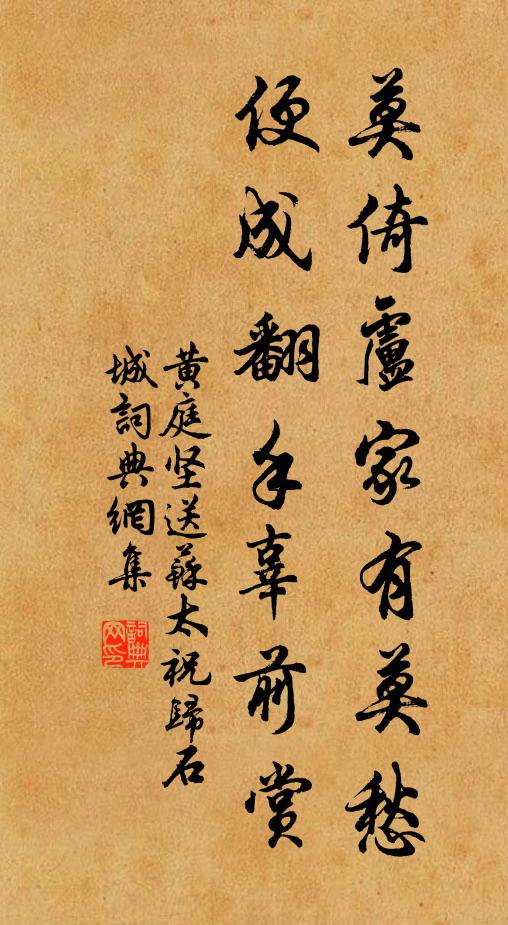 莫倚盧家有莫愁
便成翻手辜前賞
黄庭坚送蘇太祝歸石
城詞典網集
詞典
网印